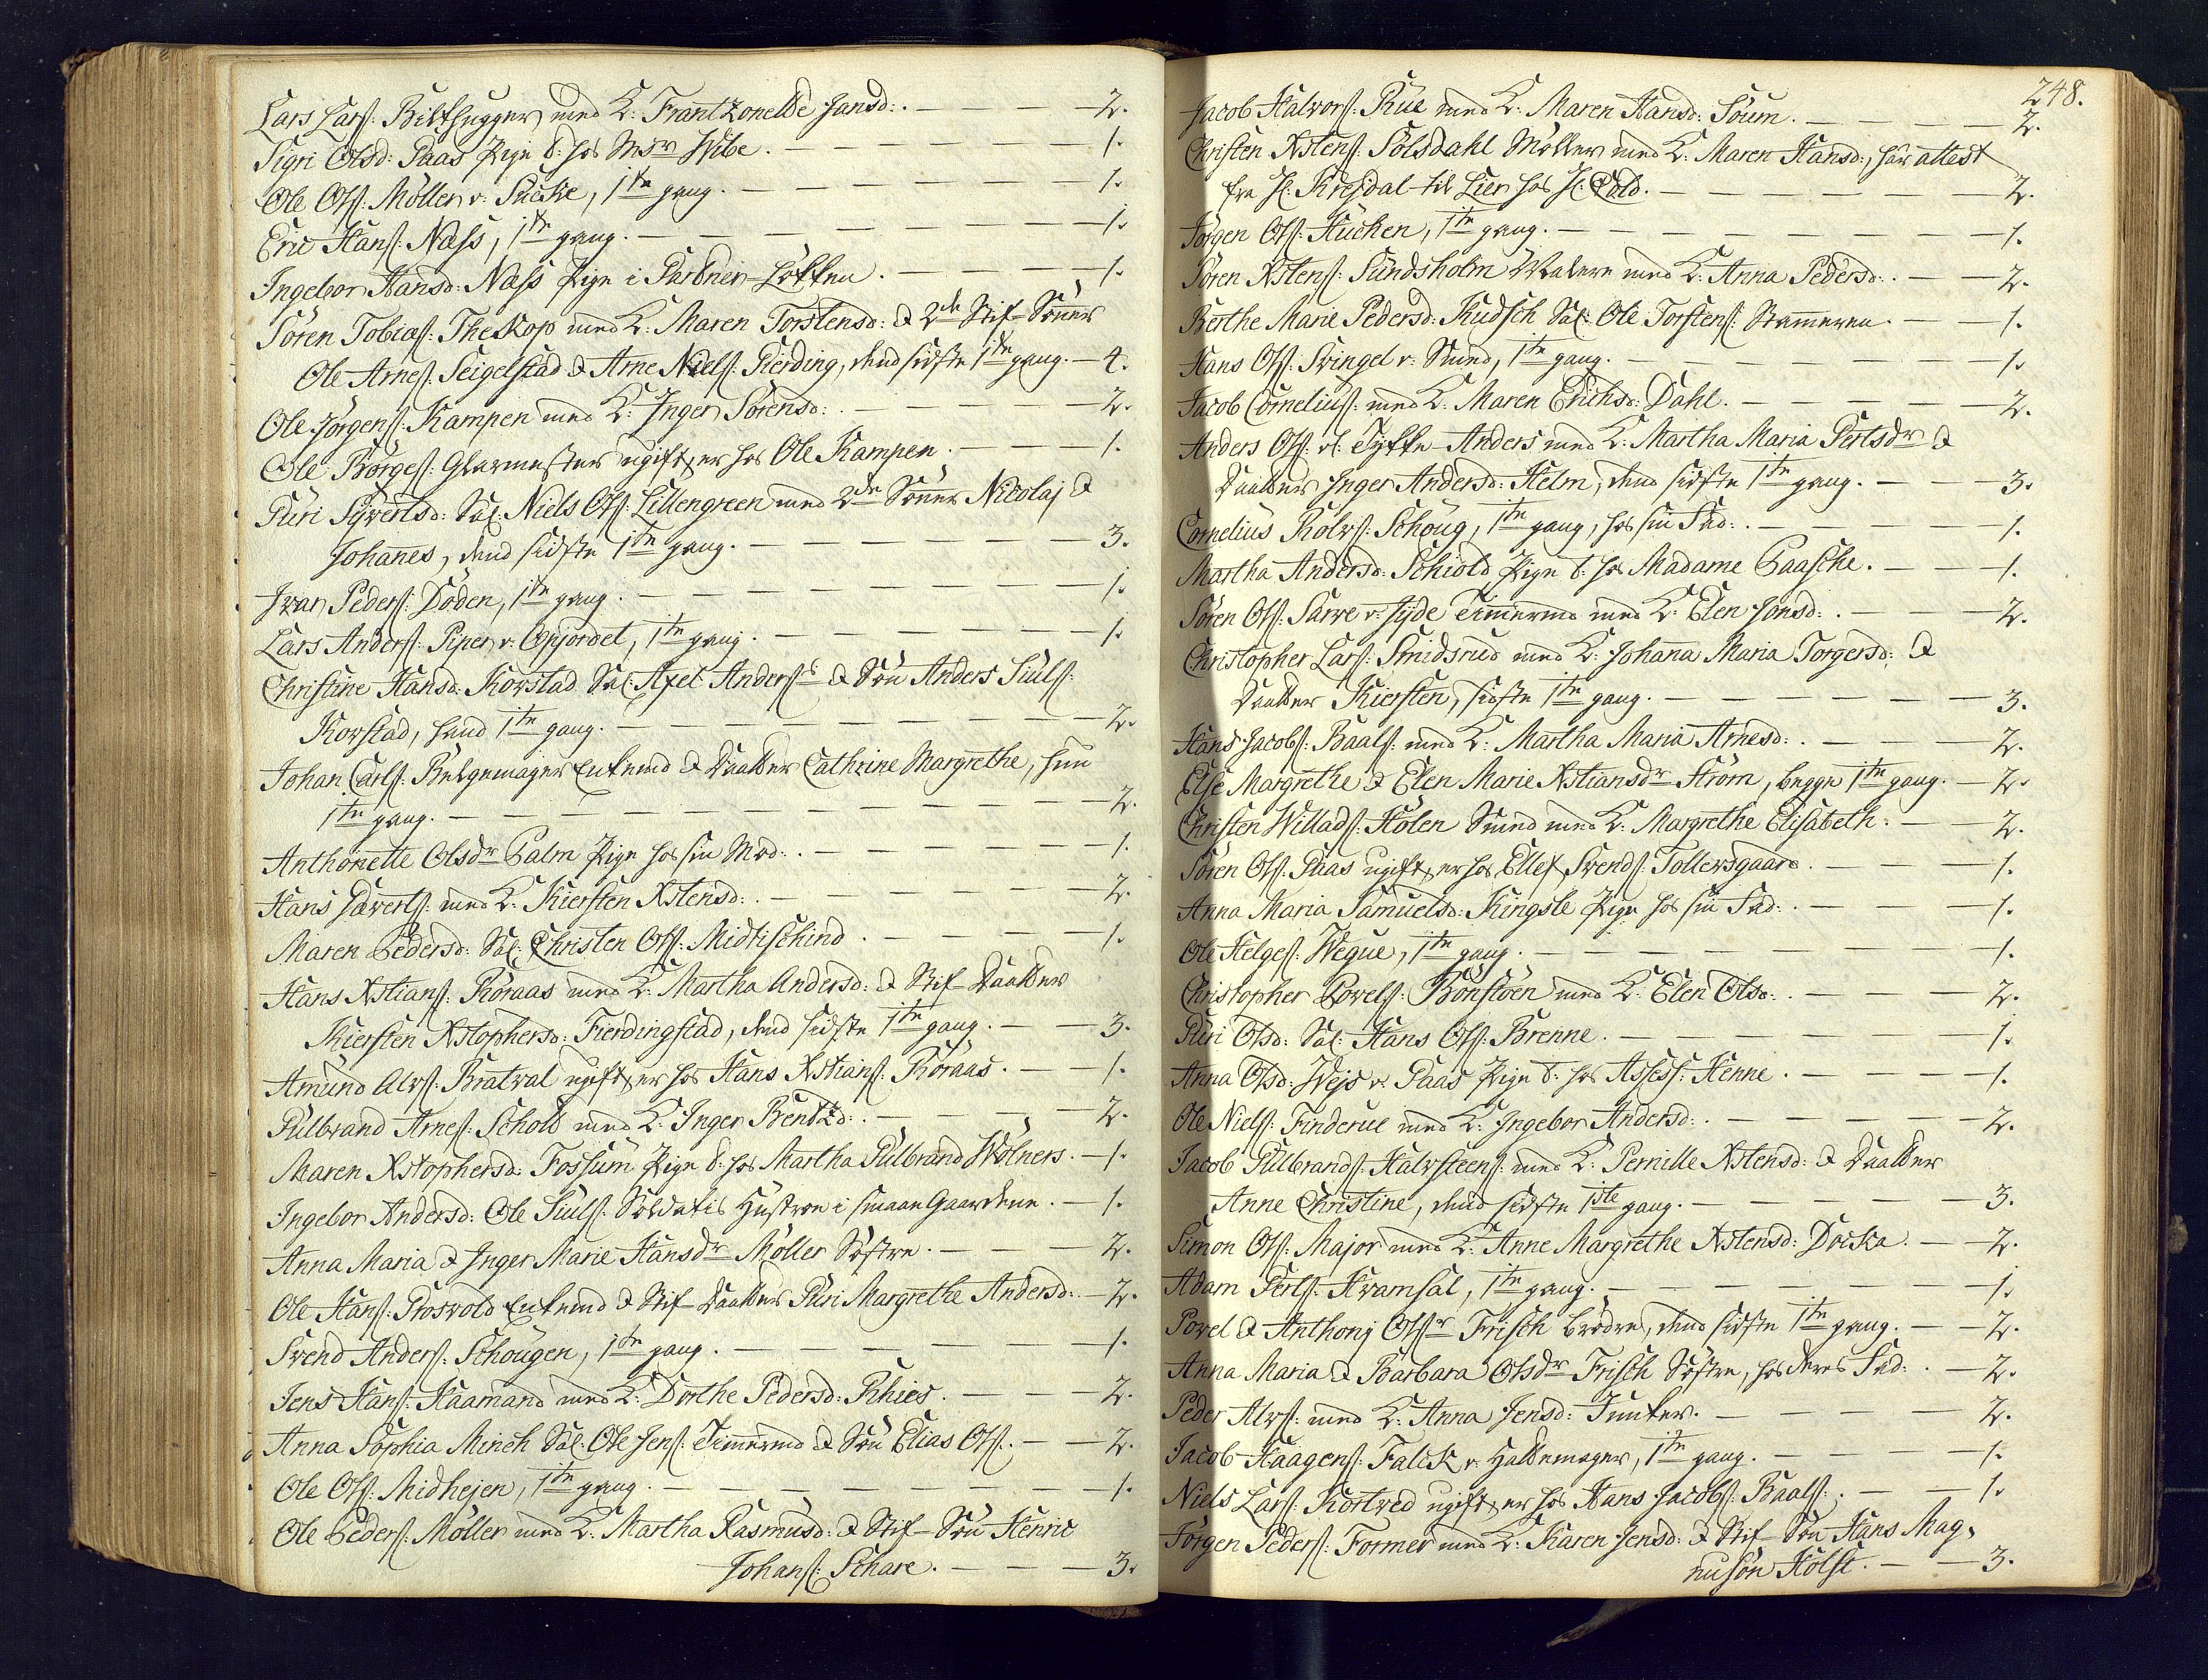 Lars Larſ: Bilthugger med K: Frantzonelle Jansd:. — 2.
Sigri Olsd: Paas Pige t: hos Msr Wibe. — 1.
Ole Olſ: Möller v: Sucke, 1te gang. — 1.
Eric Hanſ: Næss, 1te gang. — 1.
Ingebor Hansd: Næss Pige i Partner-Løkken. — 1.
Sören Tobiaſ: TheKop med K: Maren Torstensd: & 2de Stif-Sönner
Ole Arneſ: Seigelstad & Arne Nielſ: Fierding, dend sidste 1te gang. — 4.
Ole Jörgenſ: Kampen med K: Inger Sörensd:. — 2.
Ole Börgeſ: Glarmester ugift, er hos Ole Kampen. — 1.
Guri Syvertsd: Sal: Niels Olſ: Lillengreen med 2de Sönner Nicolaj &
Johanes, dend sidste 1te gang. — 3.
Ivar Pederſ: Döden, 1te gang. — 1.
Lars Anderſ: Piper v: Opjordet, 1te gang. — 1.
Christine Hansd: Korstad Sal: Axel Anderſs & Sön Anders Siulſ:
Korstad, hand 1te gang. — 2.
Johan Carlſ: Belgemager Enkemd & Daatter Cathrine Margrethe, hun
1te gang. — 2.
Anthonette Olsdr Palm Pige hos sin Mod:. — 1.
Hans Sæverlſ: med K: Kiersten Xstensd:. — 2.
Maren Pedersd: Sal: Christen Olſ: Midtischind. — 1.
Hans Xstianſ: Röraas med K: Martha Andersd: & Stif-Daatter
Kiersten Xstophersd: Fierdingstad, dend sidste 1te gang. — 3.
Amund Alvſ: Bratval ugift, er hos Hans Xstianſ: Röraas. — 1.
Gulbrand Arneſ: Schold med K: Inger Bentzd:. — 2.
Maren Xstophersd: Fossum Pige t: hos Martha Gulbrand Wölners. — 1.
Ingebor Andersd: Ole Siulſ: Soldatis Hustroe i smaae Gaardene. — 1.
Anna Maria & Inger Marie Hansdr Möller Söstre. — 2.
Ole Hanſ: Grosvold Enkemd & Stif-Daatter Guri Margrethe Andersd:. — 2.
Svend Anderſ: Schougen, 1te gang. — 1.
Jens Hanſ: Haamand med K: Dorthe Pedersd: Rhies. — 2.
Anna Sophia Minch Sal: Ole Jenſ: Timermd & Sön Elias Olſ:. — 2.
Ole Olſ: Midhejen, 1te gang. — 1.
Ole Pederſ: Möller med K: Martha Rasmusd: & Stif-Sön Henric
Johanſ: Schare. — 3.
248.
Jacob Halvorſ: Rue med K: Maren Hansd: Soum. — 2.
Christen Xstenſ: Sölsdahl Möller med K: Maren Hansd:, har attest
fra H: Krejdal til Lier hos H: Cold. — 2.
Jörgen Olſ: Hucken, 1te gang. — 1.
Sören Xstenſ: Sundsholm Wæver med K: Anna Pedersd:. — 2.
Berthe Marie Pedersd: Kudsch Sal: Ole Torstenſ: Stameren. — 1.
Hans Olſ: Svingel v: Smed, 1te gang. — 1.
Jacob Corneliuſ: med K: Maren Erichsd: Dahl. — 2.
Anders Olſ: vl: Tykke-Anders med K: Martha Maria Pertsdr &
Daatter Inger Andersd: Helm, dend sidste 1te gang. — 3.
Cornelius Rolvſ: Schoug, 1te gang, hos sin Fad:. — 1.
Martha Andersd: Schiold Pige t: hos Madame Paasche. — 1.
Sören Olſ: Sarve v: Syde Timermd med K: Elen Jonsd:. — 2.
Christopher Larſ: Smidsrud med K: Johana Maria Torgersd: &
Daatter Kiersten, sidste 1te gang. — 3.
Hans Jacobſ: Baalſ: med K: Martha Maria Arnesd:. — 2.
Else Margrethe & Elen Marie Xstiansdr Ström, begge 1te gang. — 2.
Christen Willadſ: Holen Smed med K: Margrethe Elisabeth. — 2.
Sören Olſ: Paas ugift, er hos Ellef Svendſ: Tollersgaard. — 1.
Anna Maria Samuelsd: Kingsle Pige hos sin Fad:. — 1.
Ole Helgeſ: Wegue, 1te gang. — 1.
Christopher Povelſ: Bönstöen med K: Elen Olsd:. — 2.
Guri Olsd: Sal: Hans Olſ: Brenne. — 1.
Anna Olsd: Wejs v: Paas Pige t: hos Assesſ: Henne. — 1.
Ole Nielſ: Finderue med K: Ingebor Andersd:. — 2.
Jacob Gulbrandſ: Halvsteenſ: med K: Pernille Xstensd: & Daatter
Anne Christine, dend sidste 1ste gang. — 3.
Simon Olſ: Major med K: Anne Margrethe Xstensd: Docka. — 2.
Adam Perlſ: Hvamsal, 1te gang. — 1.
Povel & Anthonj Olſr Frisch brödre, dend sidste 1te gang. — 2.
Anna Maria & Barbara Olsdr Frisch Söstre, hos deres Fad:. — 2.
Peder Alvſ: med K: Anna Jensd: Junker. — 2.
Jacob Haagenſ: Falck v: Hattemager, 1te gang. — 1.
Niels Larſ: Rostved ugift, er hos Hans Jacobſ: Baalſ:. — 1.
Jörgen Pederſ: Former med K: Karen Jensd: & Stif-Sön Hans Mag-
nusön Holst. — 3.